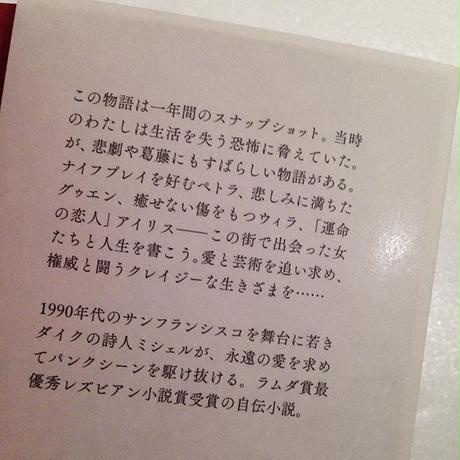 この物語は一年間のスナップショット。当時
のわたしは生活を失う恐怖に脅えていた。
が、悲劇や葛藤にもすばらしい物語がある。
ナイフプレイを好むペトラ、悲しみに満ちた
グウェン、癒せない傷をもつウィラ、「運命
の恋人」アイリス――この街で出会った女
たちと人生を書こう。愛と芸術を追い求め、
権威と闘うクレイジーな生きざまを……
1990年代のサンフランシスコを舞台に若き
ダイクの詩人ミシェルが、永遠の愛を求め
てパンクシーンを駆け抜ける。ラムダ賞最
優秀レズビアン小説賞受賞の自伝小説。